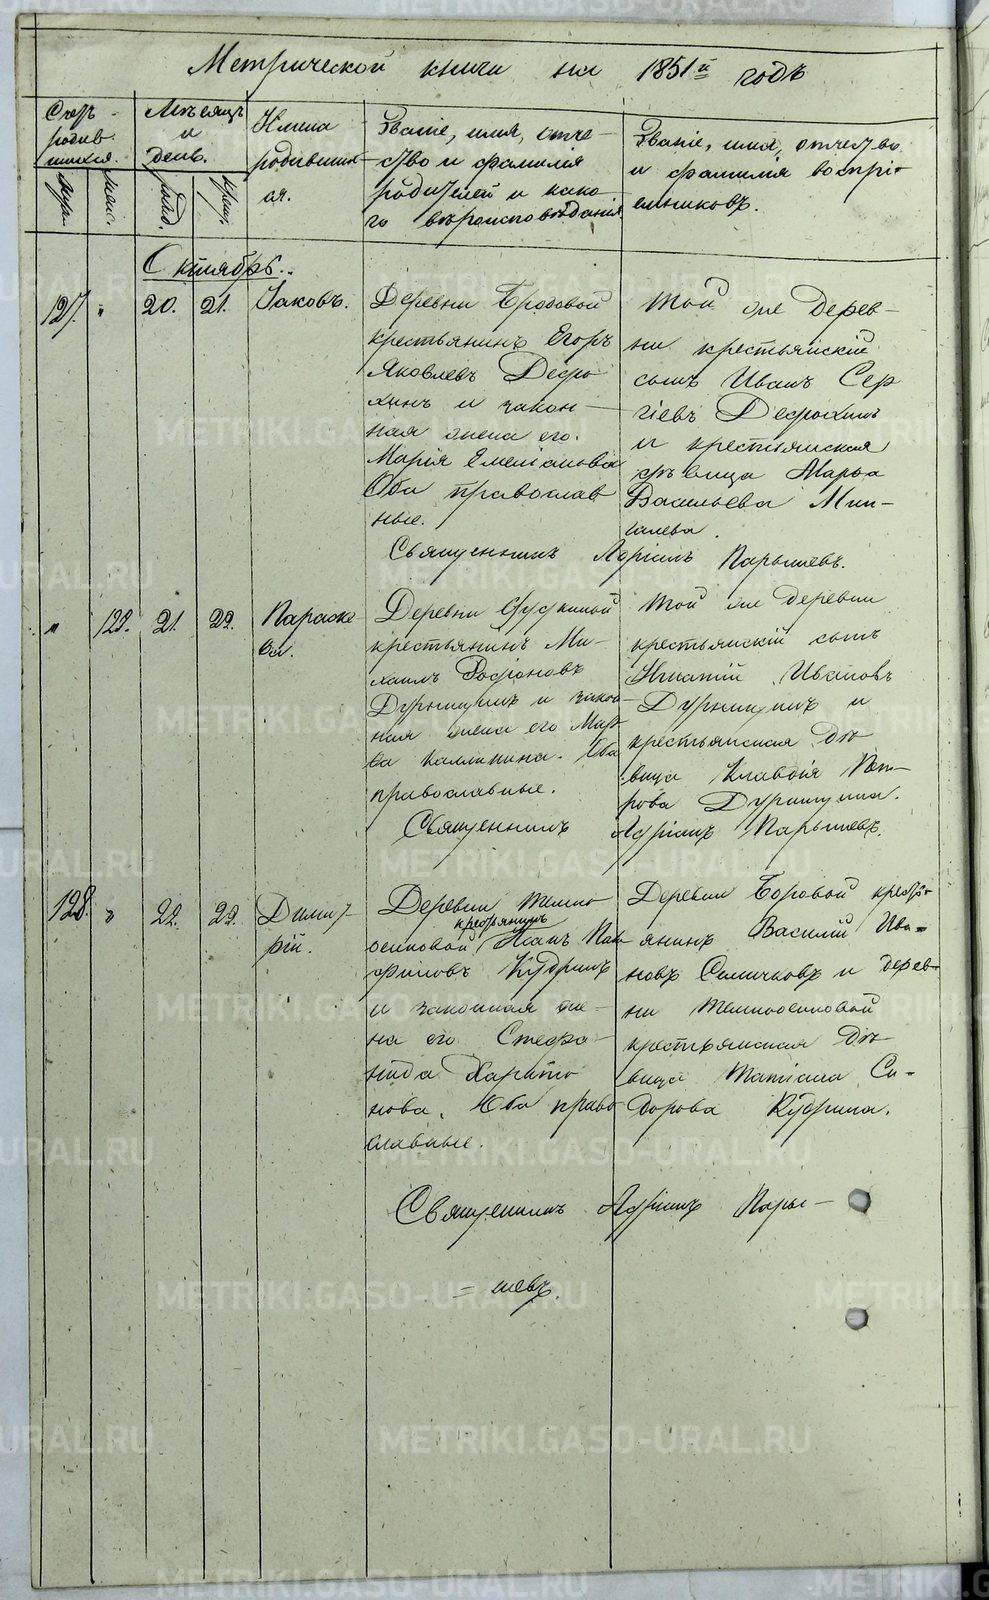 Метрической книги на 1851й годъ
Счетъ родив-шихся.
муж.
жен.
Мѣсяцъ и день.
рожд.
крещ.
Имена родивших-ся.
Званіе, имя, отче-
ство и фамилія
родителей и како-
го вѣроисповѣданія
Званіе, имя, отчество
и фамилія воспрі-
емниковъ.
Октябрь.
127. " 20. 21. Іаковъ.
Деревни Бродовой
крестьянинъ Егоръ
Яковлевъ
и закон-
ная жена его.
Марія Емеліанова
Оба православ
ные.
Той же дерев-
ни крестьянскій
сынъ Иванъ Сер
гіевъ
и крестьянская
дѣвица Марѳа
Васильева
Священникъ Адріанъ Парышевъ.
" 122. 21. 22. Параске
ва.
Деревни
крестьянинъ Ми-
хаилъ Родіоновъ
и закон-
ная жена его Мар
ѳа Калинина. Оба
православные.
Той же деревни
крестьянскій сынъ
Игнатій Ивановъ
и
крестьянская дѣ
вица Клавдія Пет-
рова
Священникъ Адріанъ Парышевъ.
128. " 22. 22. Димит-
рій.
Деревни Темно
осиновой крестьянинъ Іоаннъ Пан
филовъ Кудринъ
и законная же-
на его Стефа-
нида Харито
нова. Оба право
славные.
Деревни Боровой кресть-
янинъ Василій Ива-
новъ Семичковъ и дерев-
ни Темноосиновой
крестьянская дѣ
вица Татіана Си-
дорова Кудрина.
Священникъ Адріанъ Пары-
= шевъ.
METRIKI.GASO-URAL.RU